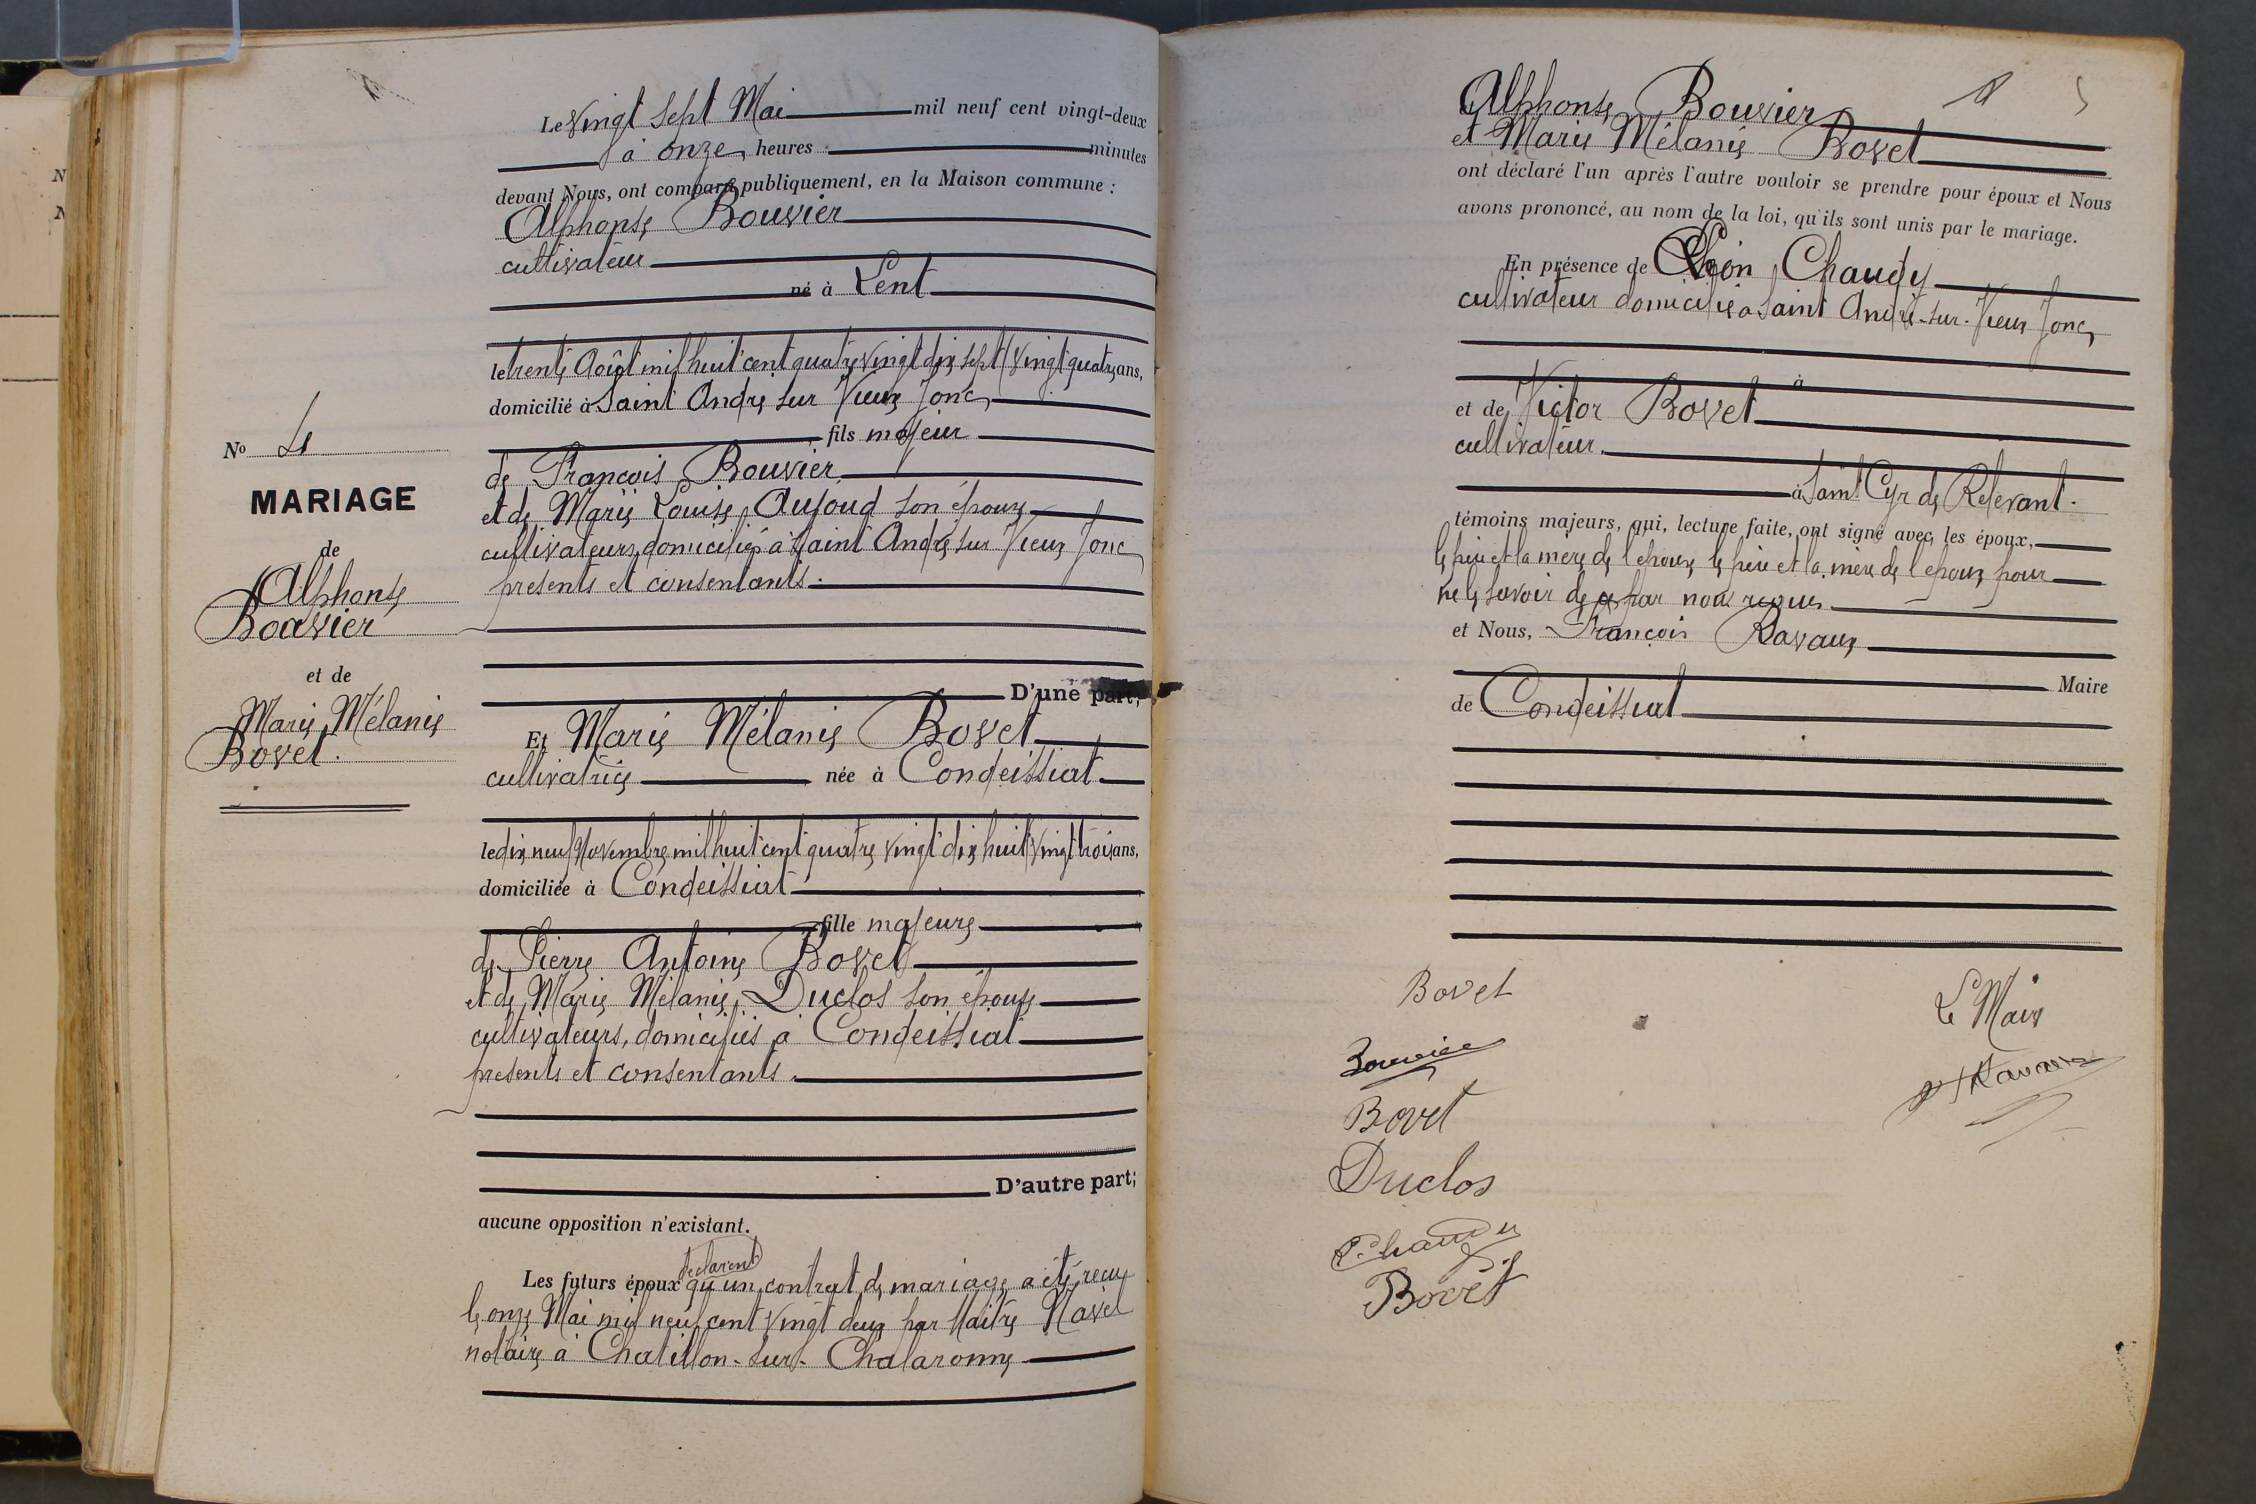 N
N
Nº 4
MARIAGE
de
Alphonse
Bouvier
et de
Marie Mélanie
Bovet.
Le vingt sept Mai mil neuf cent vingt-deux
à onze heures minutes
devant Nous, ont comparu publiquement, en la Maison commune :
Alphonse Bouvier
cultivateur
né à Lent
le trente Août mil huit cent quatre vingt dix sept (vingt quatre ans,
domicilié à Saint André sur Vieux Jonc
fils majeur
de François Bouvier
et de Marie Louise Aujoud son épouse
cultivateurs, domiciliés à Saint André sur Vieux Jonc
présents et consentants.
D'une part;
Et Marie Mélanie Bovet
cultivatrice née à Condeissiat
le dix neuf Novembre mil huit cent quatre vingt dix huit (vingt trois ans,
domiciliée à Condeissiat
fille majeure
de Pierre Antoine Bovet
et de Marie Mélanie Duclos son épouse
cultivateurs, domiciliés à Condeissiat
présents et consentants.
D'autre part;
aucune opposition n'existant.
déclarent
Les futurs époux qu'un contrat de mariage a été reçu
le onze Mai mil neuf cent vingt deux par Maître Navel
notaire à Chatillon-sur-Chalaronne
Alphonse Bouvier
et Marie Mélanie Bovet
ont déclaré l'un après l'autre vouloir se prendre pour époux et Nous
avons prononcé, au nom de la loi, qu'ils sont unis par le mariage.
En présence de Léon Chaudy
cultivateur domicilié à Saint André-sur-Vieux Jonc
à
et de Victor Bovet
cultivateur.
à Saint Cyr de Relevant.
témoins majeurs, qui, lecture faite, ont signé avec les époux,
le père et la mère de l'épouse le père et la mère de l'époux pour
ne le savoir de ce par nous requis
et Nous, François Ravaux
Maire
de Condeissiat
Bovet
Bouvier
Bovet
Duclos
Chaudy
Bovet
Le Maire
Ravaux